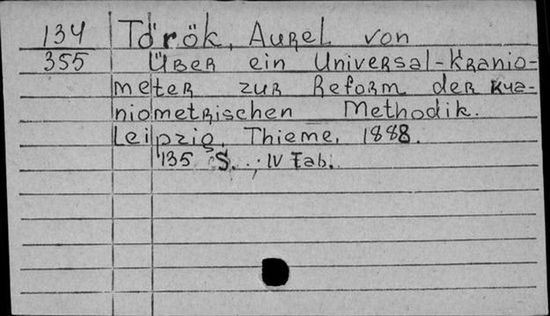 134 Török, Aurel von
355 Über ein Universal-Kranio-
meter zur Reform der kra-
niometrischen Methodik.
Leipzig, Thieme, 1888.
135 S. ; IV Tab.